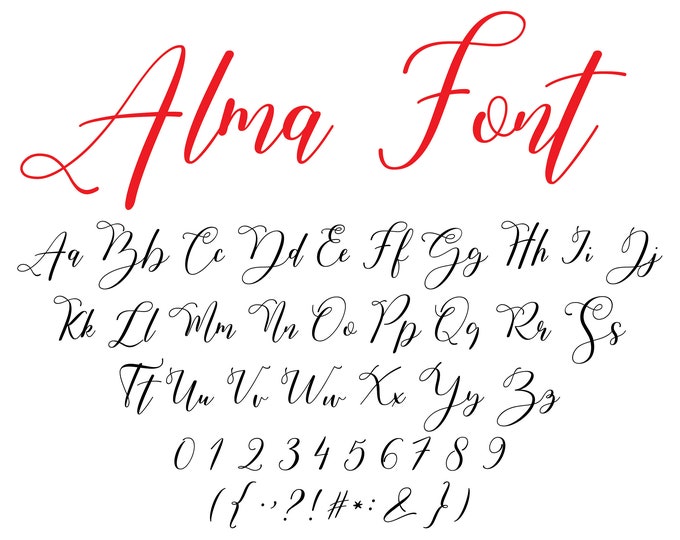 Alma Font
Aa Bb Cc Dd Ee Ff Gg Hh Ii Jj
Kk Ll Mm Nn Oo Pp Qq Rr Ss
Tt Uu Vv Ww Xx Yy Zz
0 1 2 3 4 5 6 7 8 9
( { . , ? ! # * : & } )